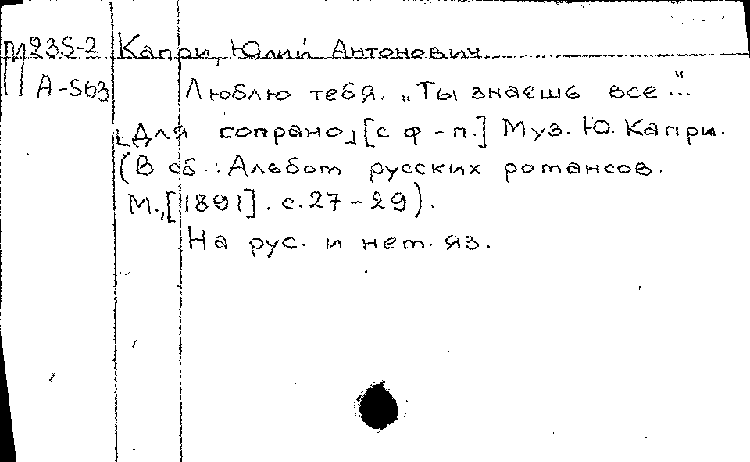 М 235-2 Капри, Юлий Антонович
А-563 Люблю тебя. „Ты знаешь все..."
[Для сопрано] [с ф-п.] Муз. Ю. Капри.
(В сб.: Альбом русских романсов.
М., [1891]. с. 27-29).
На рус. и нем. яз.